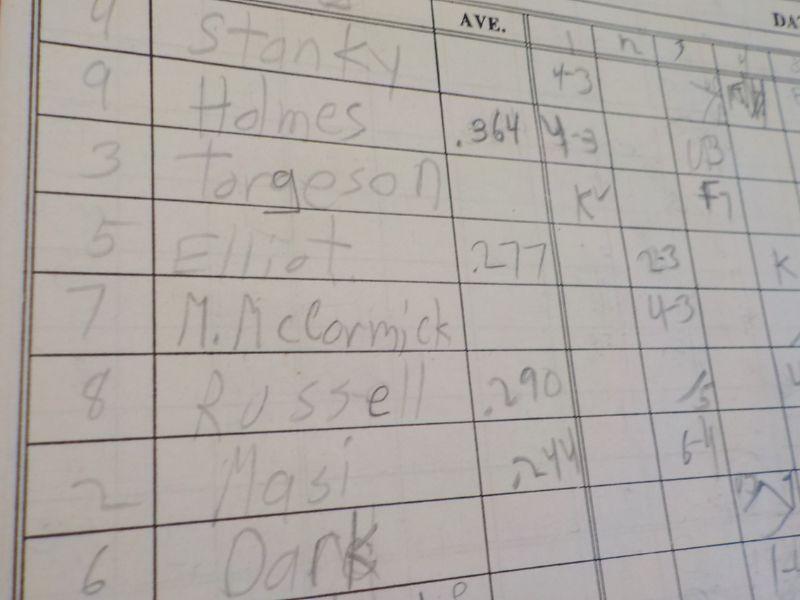 AVE. DA
1 2 3
4 Stanky 4-3
9 Holmes .364 4-3 UB
3 Torgeson K F7
5 Elliot .277 2-3 K
7 M. McCormick 4-3
8 Russell .290
2 Masi .244 6-4
6 Dark